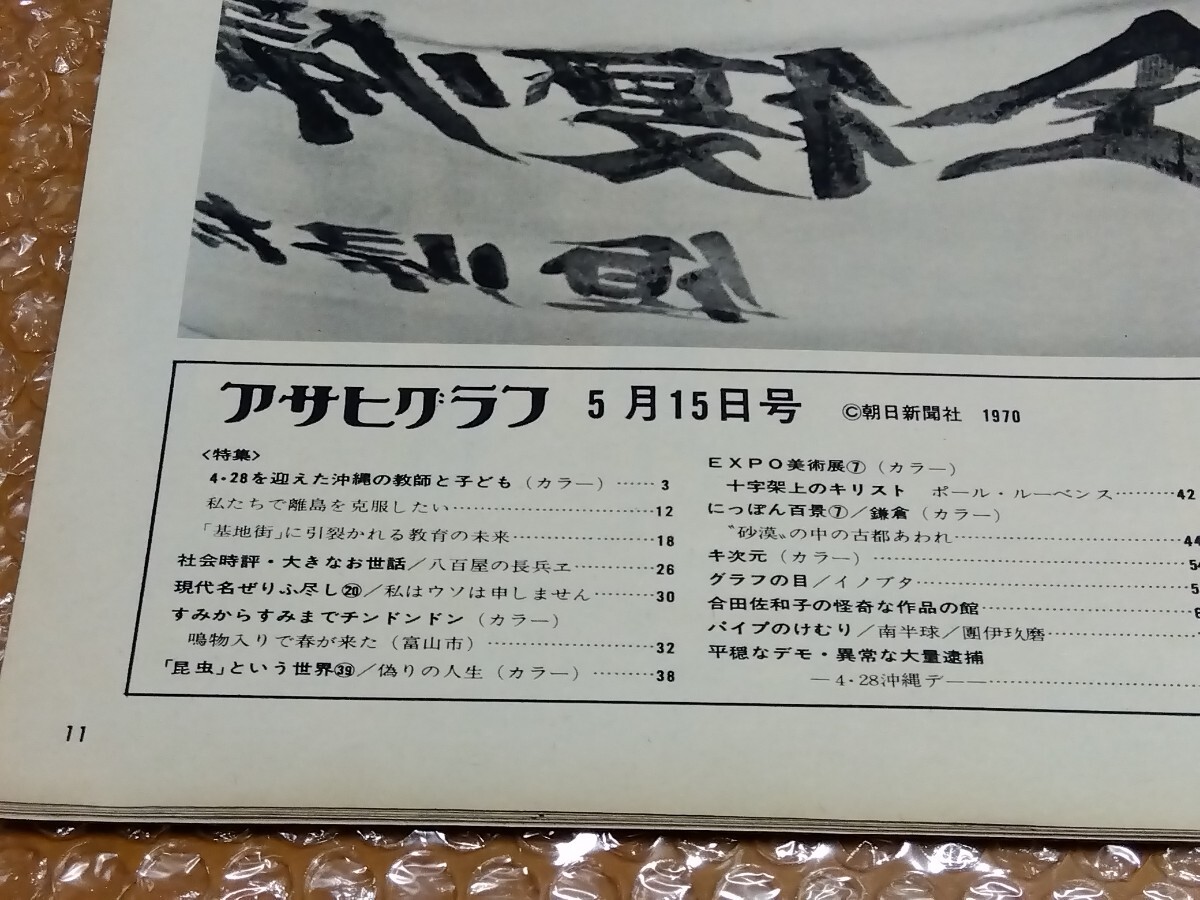 アサヒグラフ 5月15日号 ©朝日新聞社 1970
<特集>
4・28を迎えた沖縄の教師と子ども(カラー)……3
私たちで離島を克服したい……12
「基地街」に引裂かれる教育の未来……18
社会時評・大きなお世話/八百屋の長兵ヱ……26
現代名ぜりふ尽し⑳/私はウソは申しません……30
すみからすみまでチンドンドン(カラー)
鳴物入りで春が来た(富山市)……32
「昆虫」という世界㊴/偽りの人生(カラー)……38
EXPO美術展⑦(カラー)
十字架上のキリスト ポール・ルーベンス……42
にっぽん百景⑦/鎌倉(カラー)
〝砂漠〟の中の古都あわれ……44
キ次元(カラー)……
グラフの目/イノブタ……
合田佐和子の怪奇な作品の館……
パイプのけむり/南半球/團伊玖磨……
平穏なデモ・異常な大量逮捕
—4・28沖縄デー—……
11